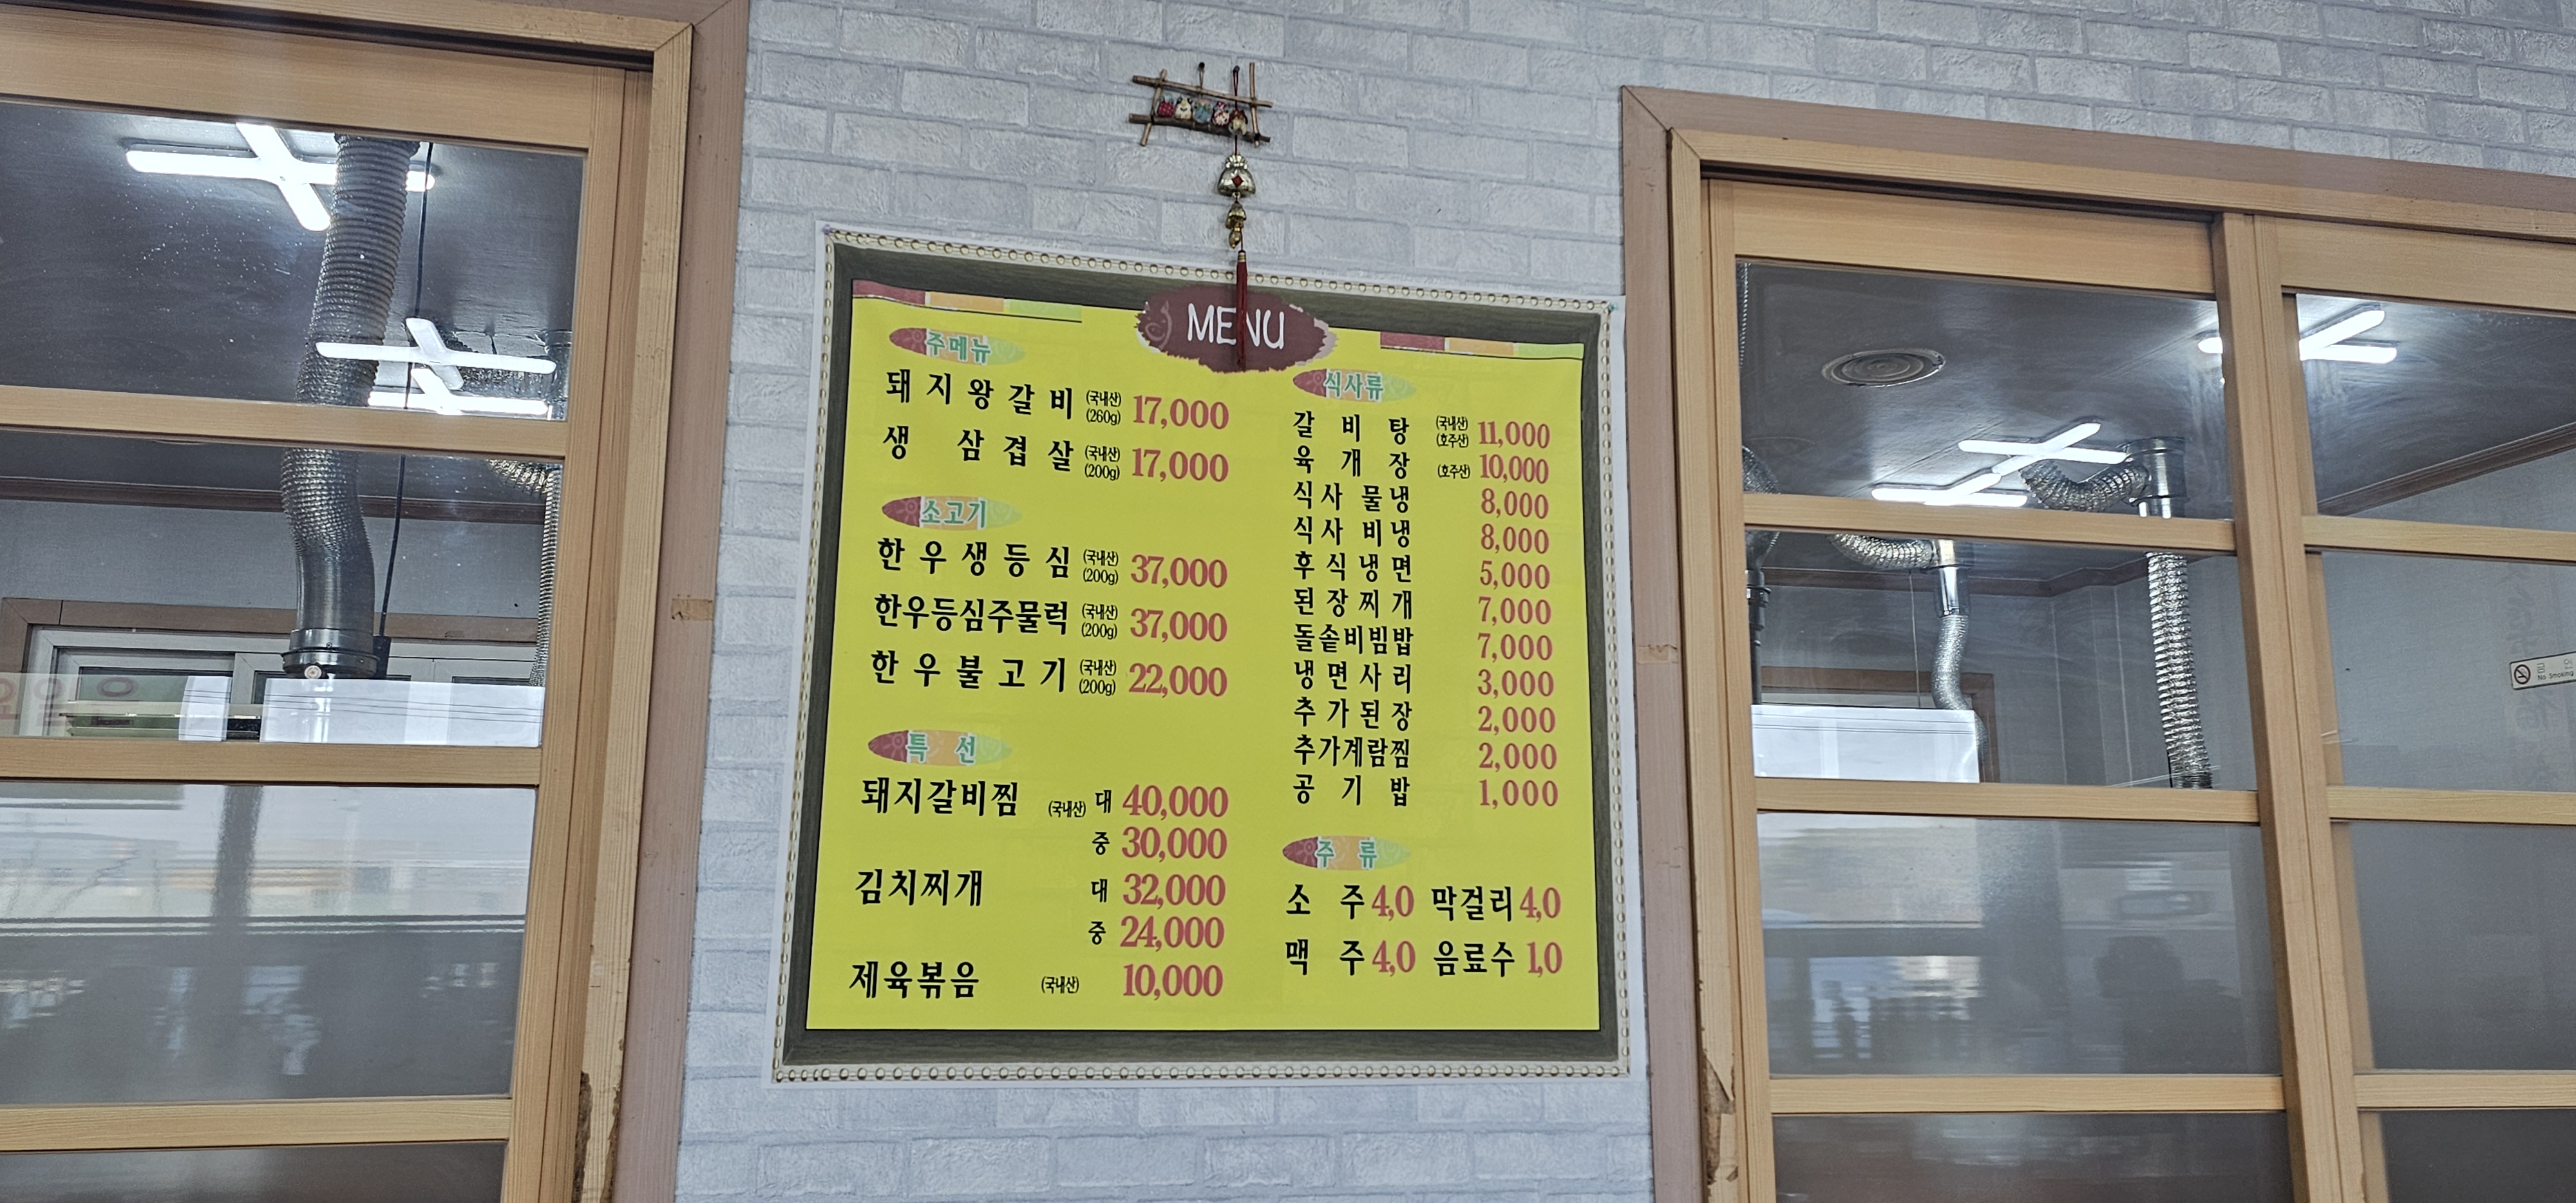 MENU
주메뉴
돼지왕갈비 (국내산) (260g) 17,000
생 삼겹살 (국내산) (200g) 17,000
소고기
한우생등심 (국내산) (200g) 37,000
한우등심주물럭 (국내산) (200g) 37,000
한우불고기 (국내산) (200g) 22,000
특 선
돼지갈비찜 (국내산) 대 40,000
중 30,000
김치찌개 대 32,000
중 24,000
제육볶음 (국내산) 10,000
식사류
갈비탕 (국내산) (호주산) 11,000
육개장 (호주산) 10,000
식사 물냉 8,000
식사 비냉 8,000
후식냉면 5,000
된장찌개 7,000
돌솥비빔밥 7,000
냉면사리 3,000
추가된장 2,000
추가계람찜 2,000
공기밥 1,000
주 류
소 주 4,0 막걸리 4,0
맥 주 4,0 음료수 1,0
금 연
No Smoking